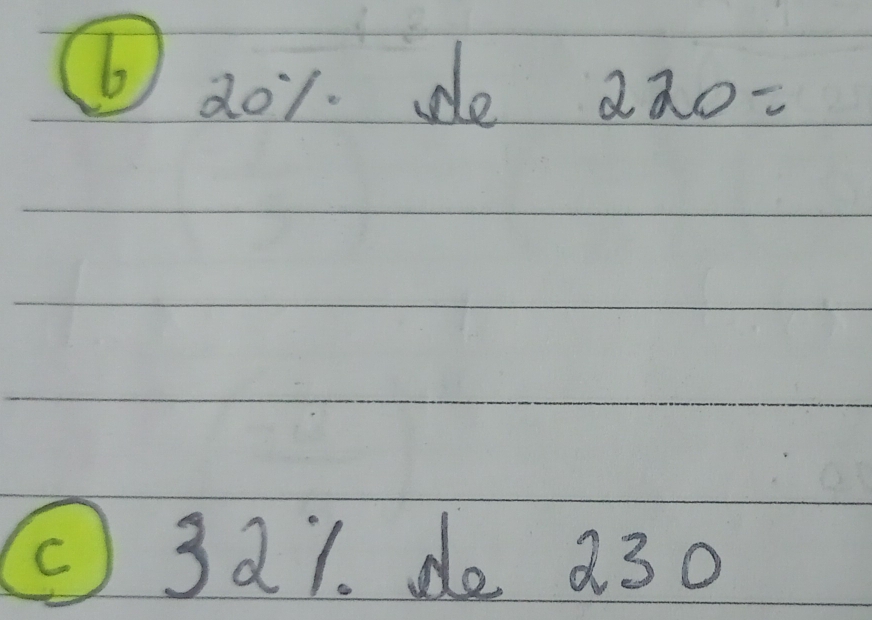 b 20% de 220=
c 32% de 230